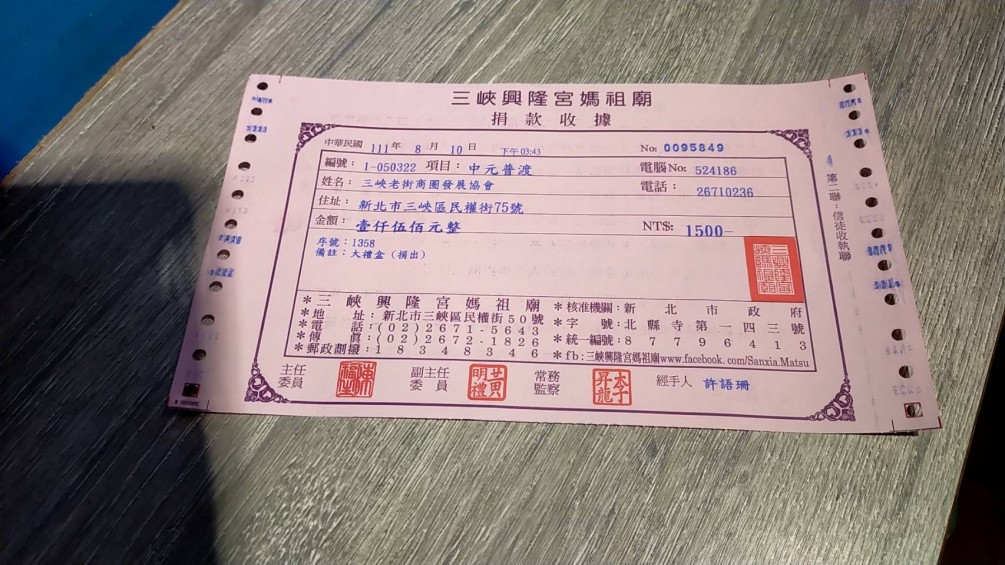 三峽興隆宮媽祖廟
捐款收據
中華民國 111年 8 月 10 日 下午 03:43 No: 0095849
編號: 1-050322 項目: 中元普渡 電腦No: 524186
姓名: 三峽老街商圈發展協會 電話: 26710236
住址: 新北市三峽區民權街75號
金額: 壹仟伍佰元整 NT$: 1500-
序號:1358
備註:大禮盒(捐出)
*三峽興隆宮媽祖廟 *核准機關:新北市政府
*地址:新北市三峽區民權街50號 *字號:北縣寺第一四三號
*電話:(02)2671-5643 *統一編號:87796413
*傳真:(02)2672-1826 *fb:三峽興隆宮媽祖廟www.facebook.com/Sanxia.Matsu
*郵政劃撥:18348346
主任委員 副主任委員 常務監察 經手人 許語珊
第二聯:信徒收執聯